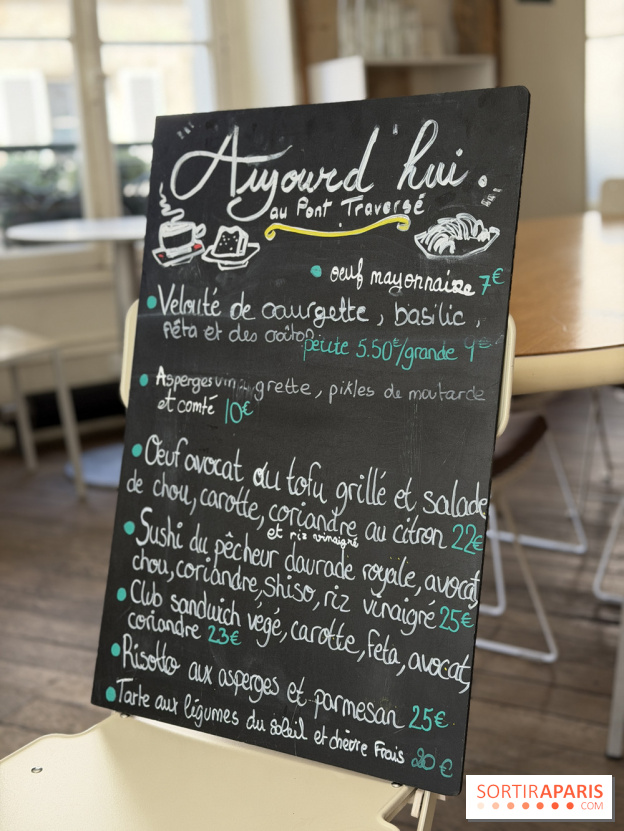 Aujourd'hui.
au Pont Traversé
oeuf mayonnaise 7€
Velouté de courgette, basilic,
féta et des croûtons
petite 5.50€/grande 9€
Asperges vinaigrette, pikles de moutarde
et comté 10€
Oeuf avocat ou tofu grillé et salade
de chou, carotte, coriandre au citron 22€
et riz vinaigré
Sushi du pêcheur daurade royale, avocat,
chou, coriandre, shiso, riz vinaigré 25€
Club sandwich végé, carotte, feta, avocat,
coriandre 23€
Risotto aux asperges et parmesan 25€
Tarte aux légumes du soleil et chèvre frais 20€
SORTIRAPARIS
.COM